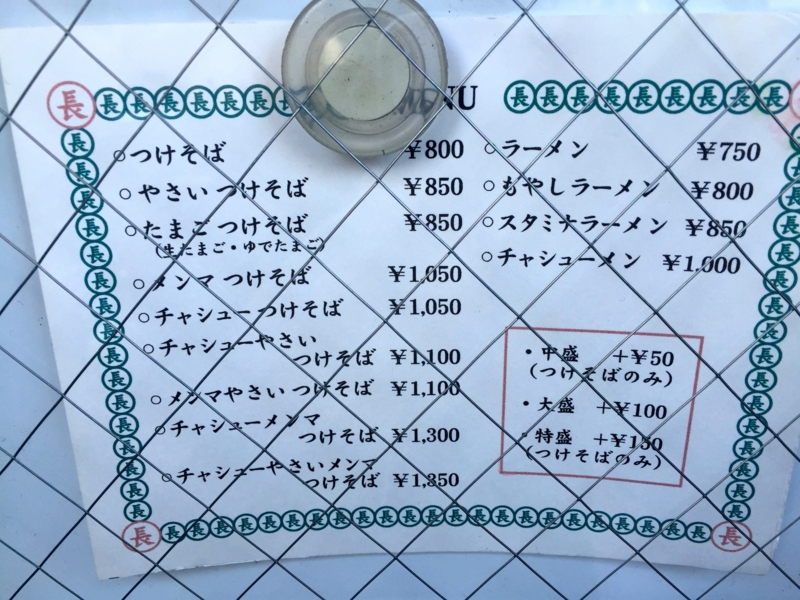 MENU
○つけそば ¥800
○やさいつけそば ¥850
○たまごつけそば ¥850
(生たまご・ゆでたまご)
○メンマつけそば ¥1,050
○チャシューつけそば ¥1,050
○チャシューやさい
つけそば ¥1,100
○メンマやさいつけそば ¥1,100
○チャシューメンマ
つけそば ¥1,300
○チャシューやさいメンマ
つけそば ¥1,350
○ラーメン ¥750
○もやしラーメン ¥800
○スタミナラーメン ¥850
○チャシューメン ¥1,000
・中盛 +¥50
(つけそばのみ)
・大盛 +¥100
・特盛 +¥150
(つけそばのみ)